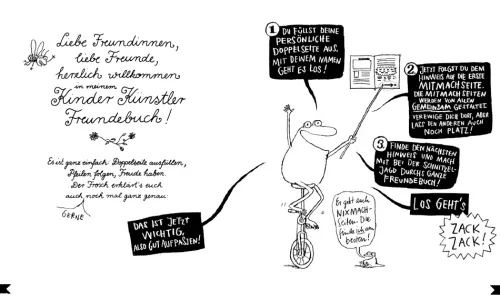 Liebe Freundinnen,
liebe Freunde,
herzlich willkommen
in meinem
Kinder Künstler
Freundebuch!
Es ist ganz einfach: Doppelseite ausfüllen,
Pfeilen folgen, Freude haben.
Der Frosch erklärt's euch
auch noch mal ganz genau.
GERNE
DAS IST JETZT
WICHTIG,
ALSO GUT AUFPASSEN!
1 DU FÜLLST DEINE
PERSÖNLICHE
DOPPELSEITE AUS.
MIT DEINEM NAMEN
GEHT ES LOS!
2 JETZT FOLGST DU DEM
HINWEIS AUF DIE ERSTE
MITMACHSEITE.
DIE MITMACHSEITEN
WERDEN VON ALLEN
GEMEINSAM GESTALTET.
VEREWIGE DICH DORT, ABER
LASS DEN ANDEREN AUCH
NOCH PLATZ!
3 FINDE DEN NÄCHSTEN
HINWEIS UND MACH
MIT BEI DER SCHNITZEL-
JAGD DURCHS GANZE
FREUNDEBUCH!
LOS GEHT'S
ZACK
ZACK!
Es gibt auch
NIXMACH-
Seiten. Die
finde ich am
besten!